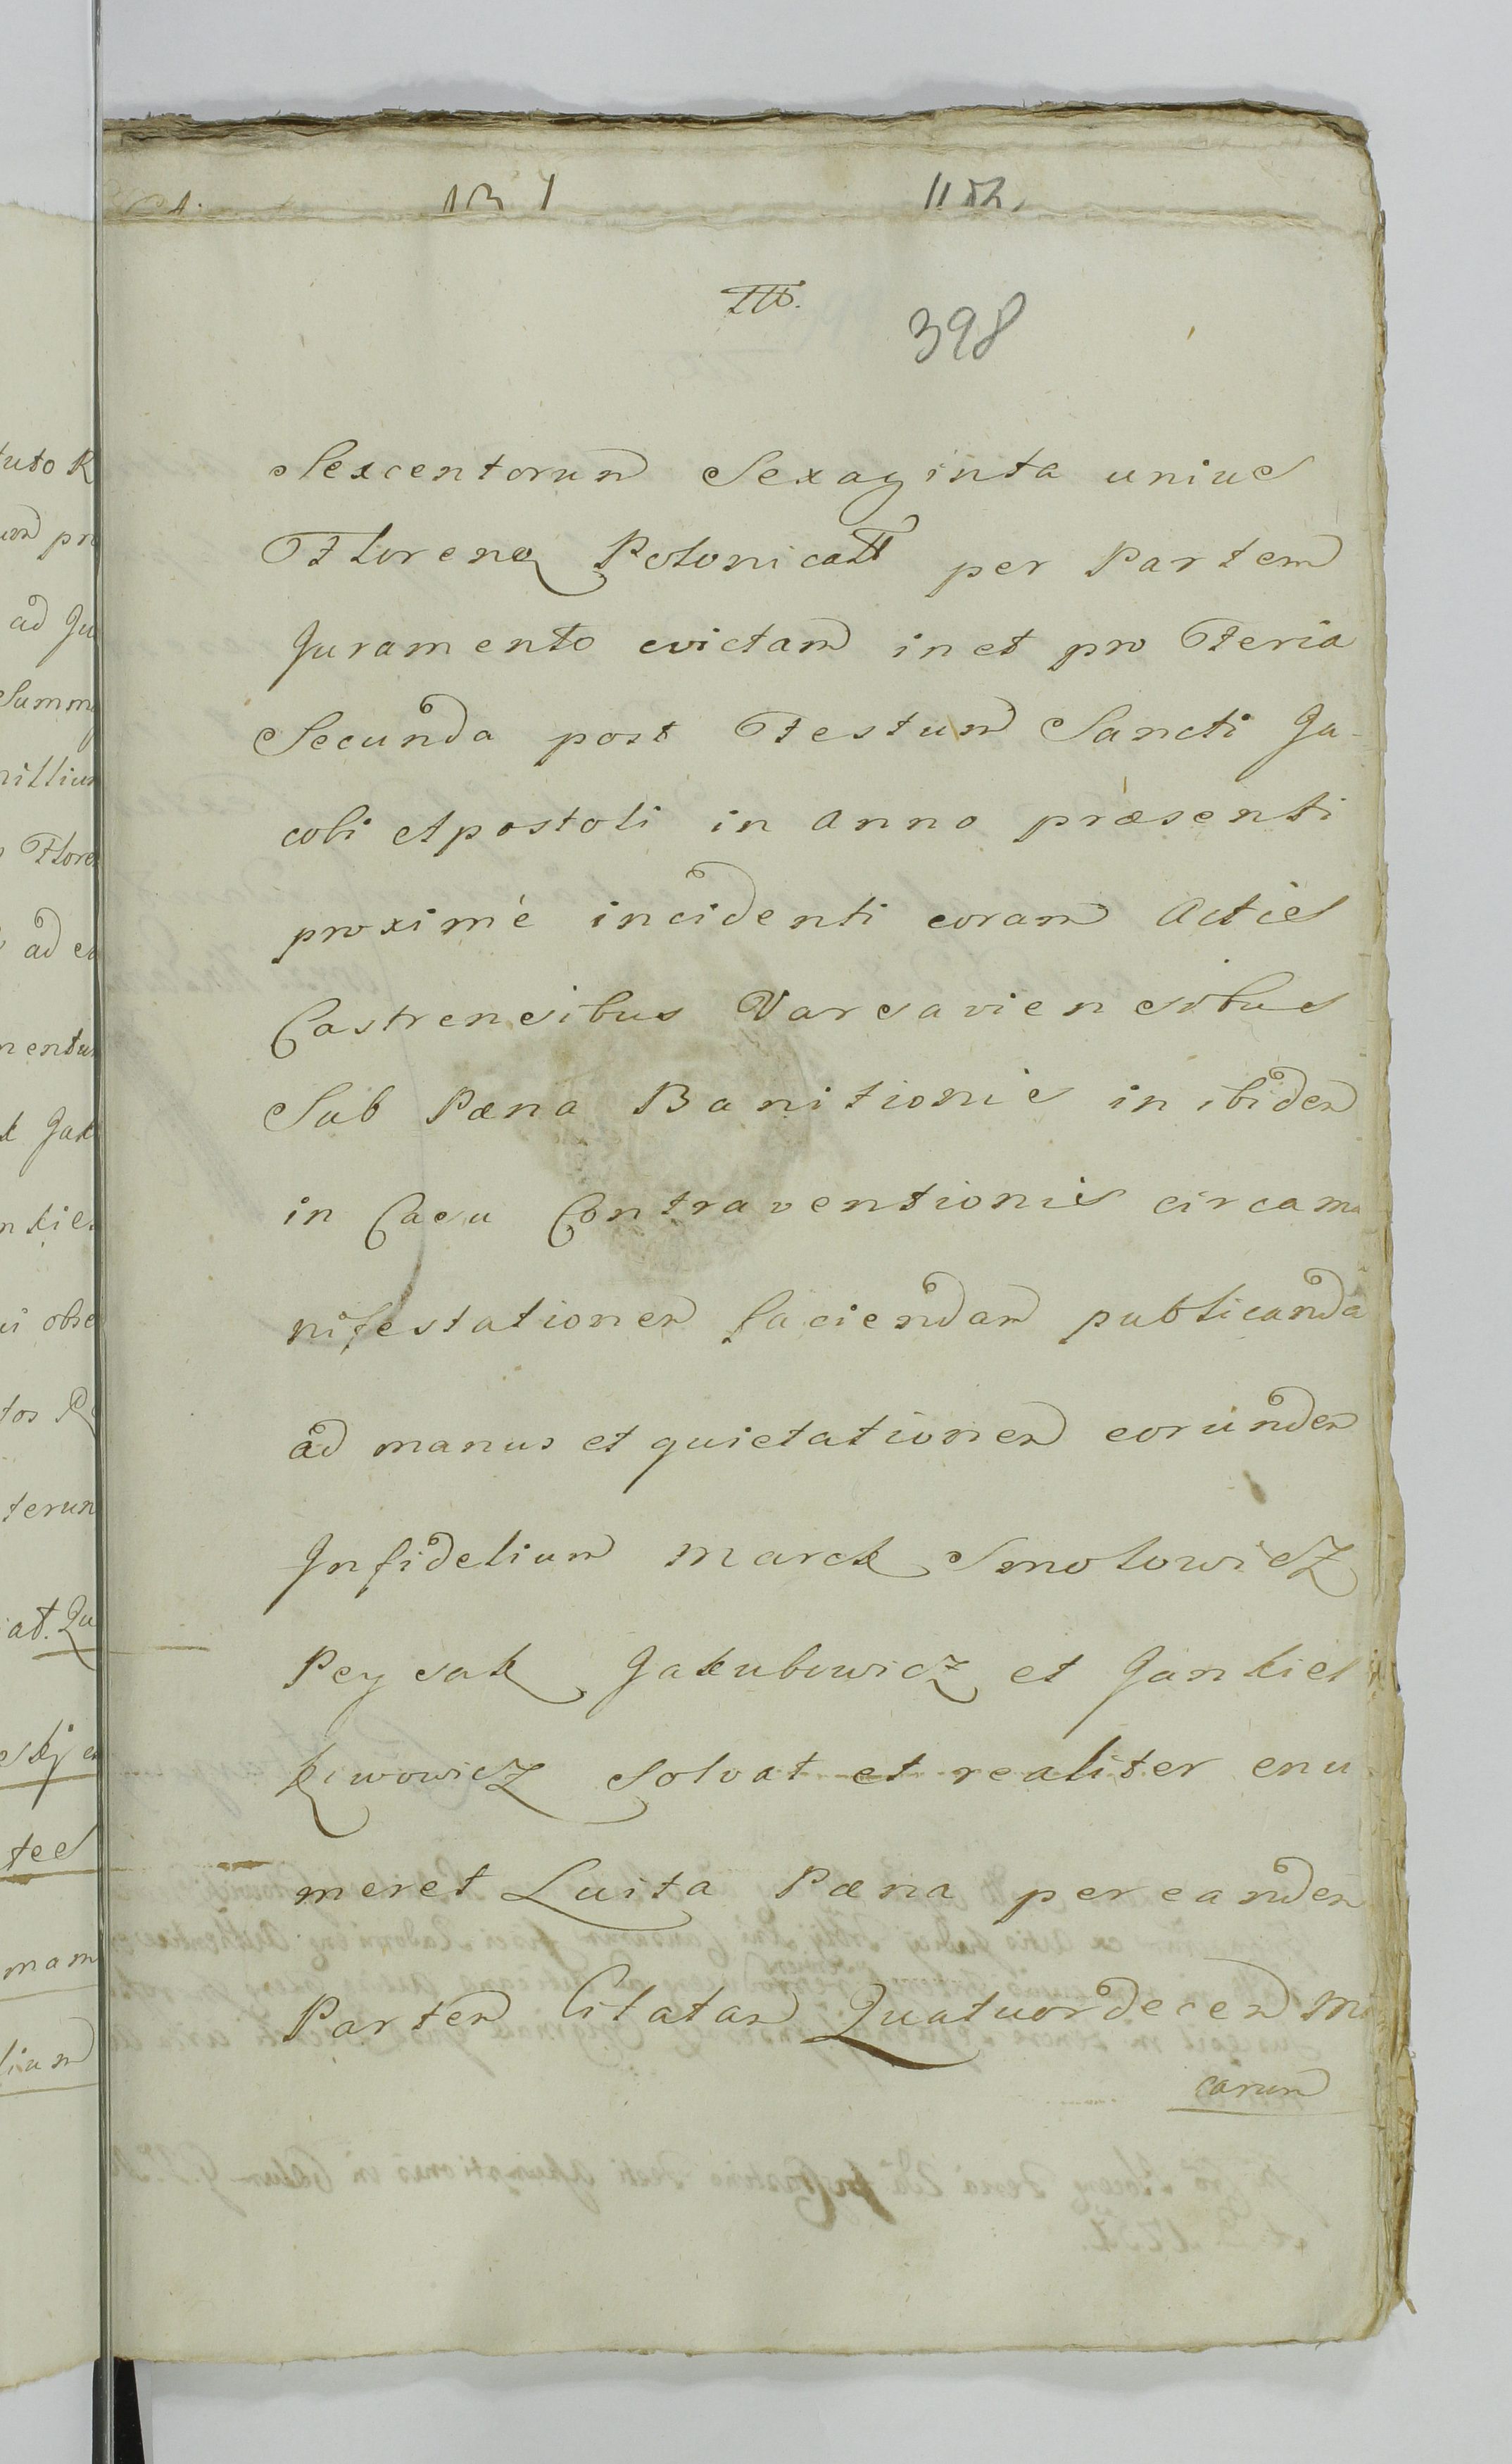 III.
398
Sexcentorum Sexaginta unius
Floreno Polonicall per Partem
Juramento evictam in et pro Feria
Secunda post Festum Sancti Ja-
cobi Apostoli in Anno præsenti
proximè incidenti coram Actis
Castrensibus Varsaviensibus
Sub Pæna Banitionis in ibidem
in Casu Contraventionis circa ma
nifestationem faciendam publicanda
ad manus et quietationem eorundem
Infidelium Marek Smolowicz
Peysak Jakubowicz et Jankiel
Kiwowicz Solvat et realiter enu
meret Luita Pæna per eandem
Partem Citatam Quatuordecem M
carum